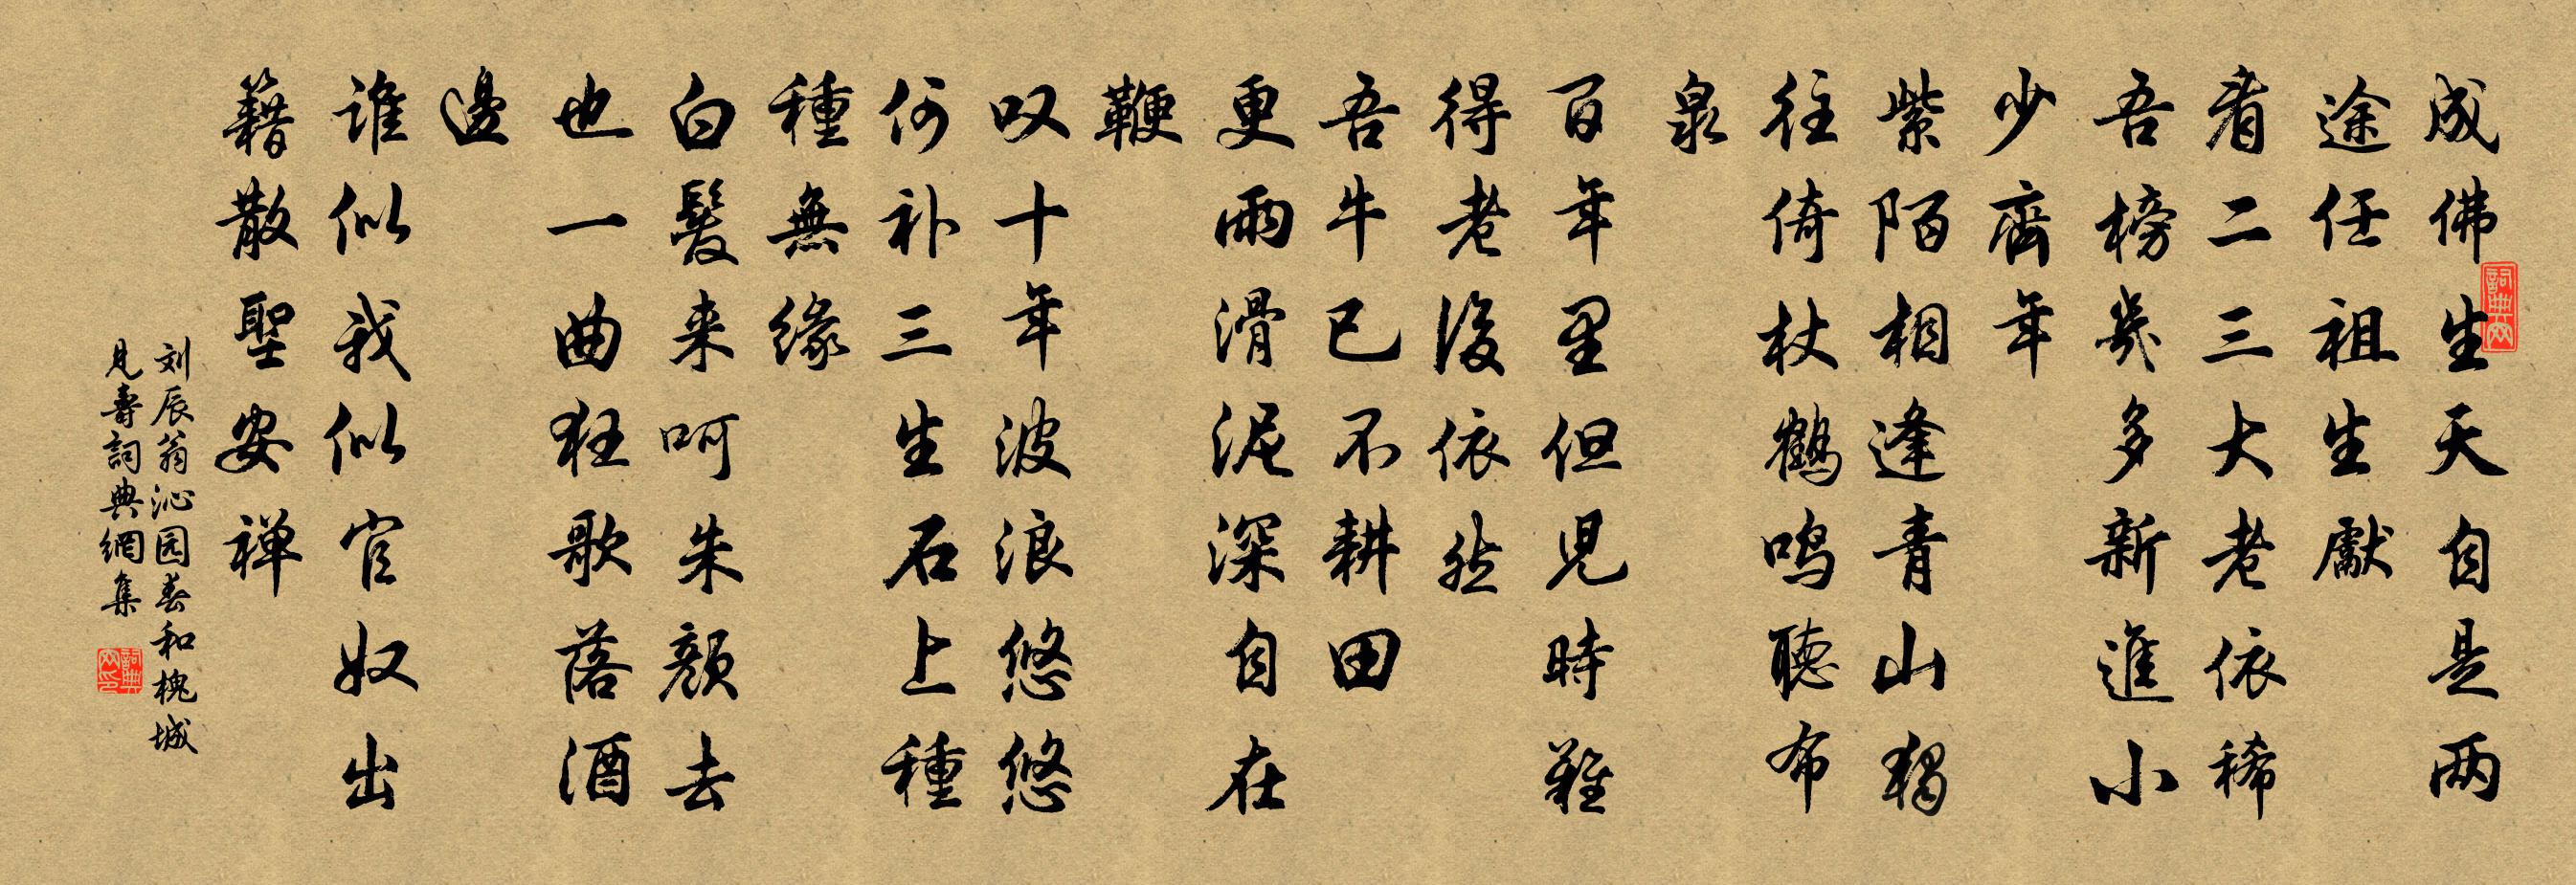 成佛生天自是两
途任祖生獻
看二三大老依稀
吾榜幾多新進小
少齊年
紫陌相逢青山獨
往倚杖鶴鸣聽布
泉
百年里但見時難
得老後依然
吾牛已不耕田
更雨滑泥深自在
鞭
叹十年波浪悠悠
何补三生石上種
種無緣
白髮来呵朱顏去
也一曲狂歌落酒
邊
谁似我似官奴出
籍散聖安禅
刘辰翁沁园春和槐城
見壽詞典網集
詞典网
詞典网印